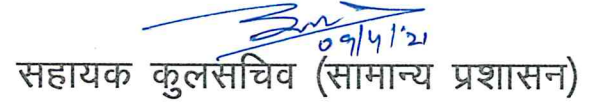 09/4/21
सहायक कुलसचिव (सामान्य प्रशासन)